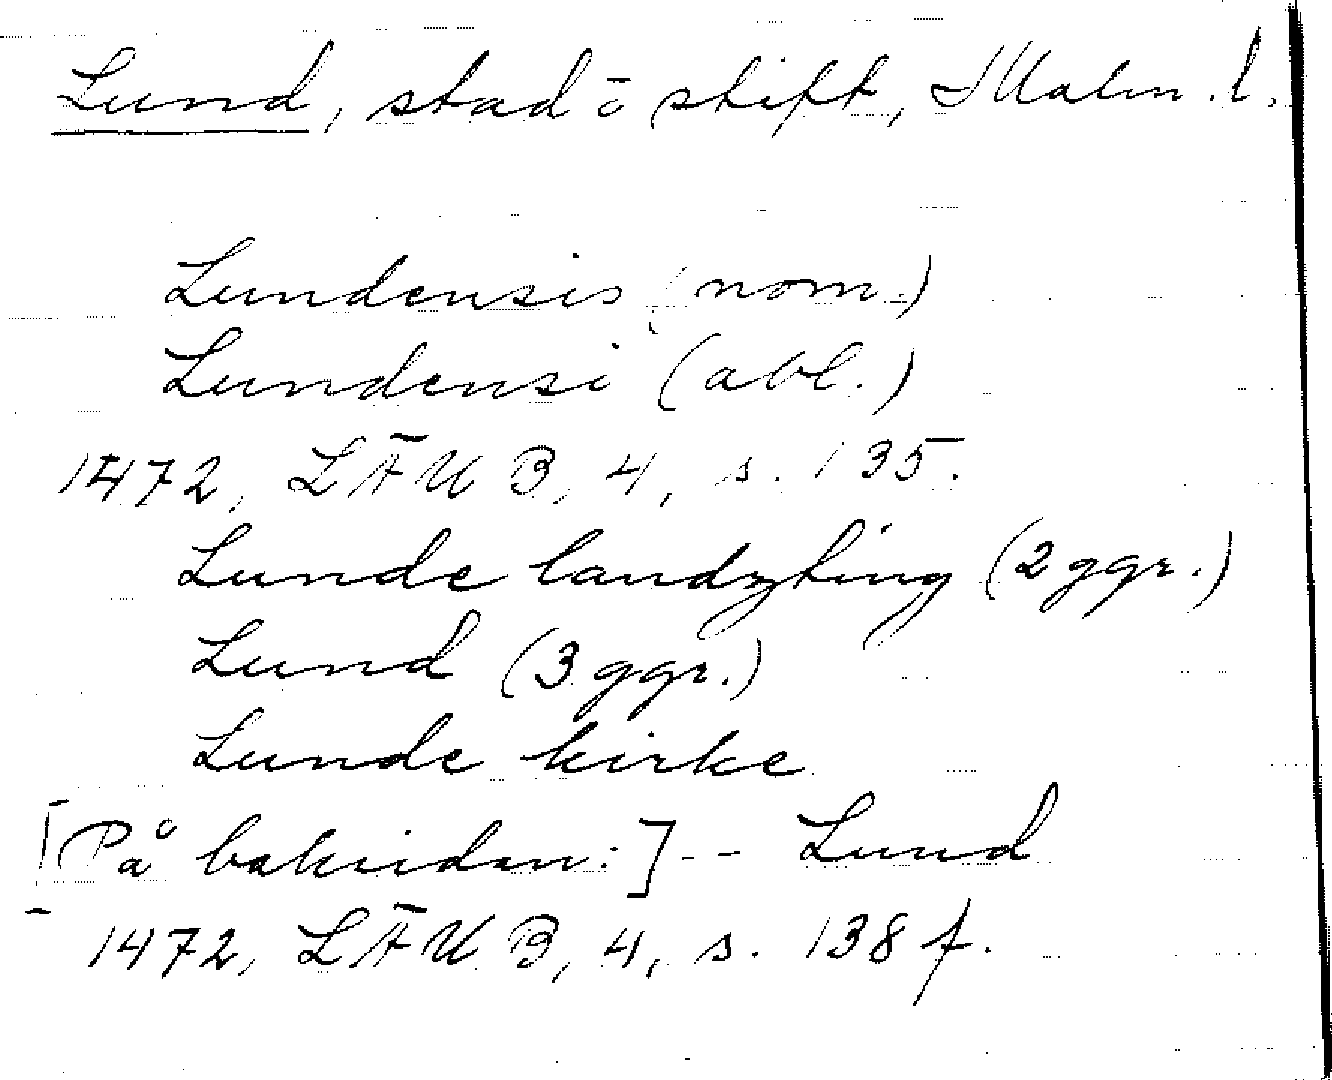 Lund, stad ō stift, Malm. l.
Lundensis (nom.)
Lundensi (abl.)
1472, LÄUB, 4, s. 135.
Lunde landzting (2 ggr.)
Lund (3 ggr.)
Lunde kirke
[På baksidan:] -- Lund
1472, LÄUB, 4, s. 138 f.